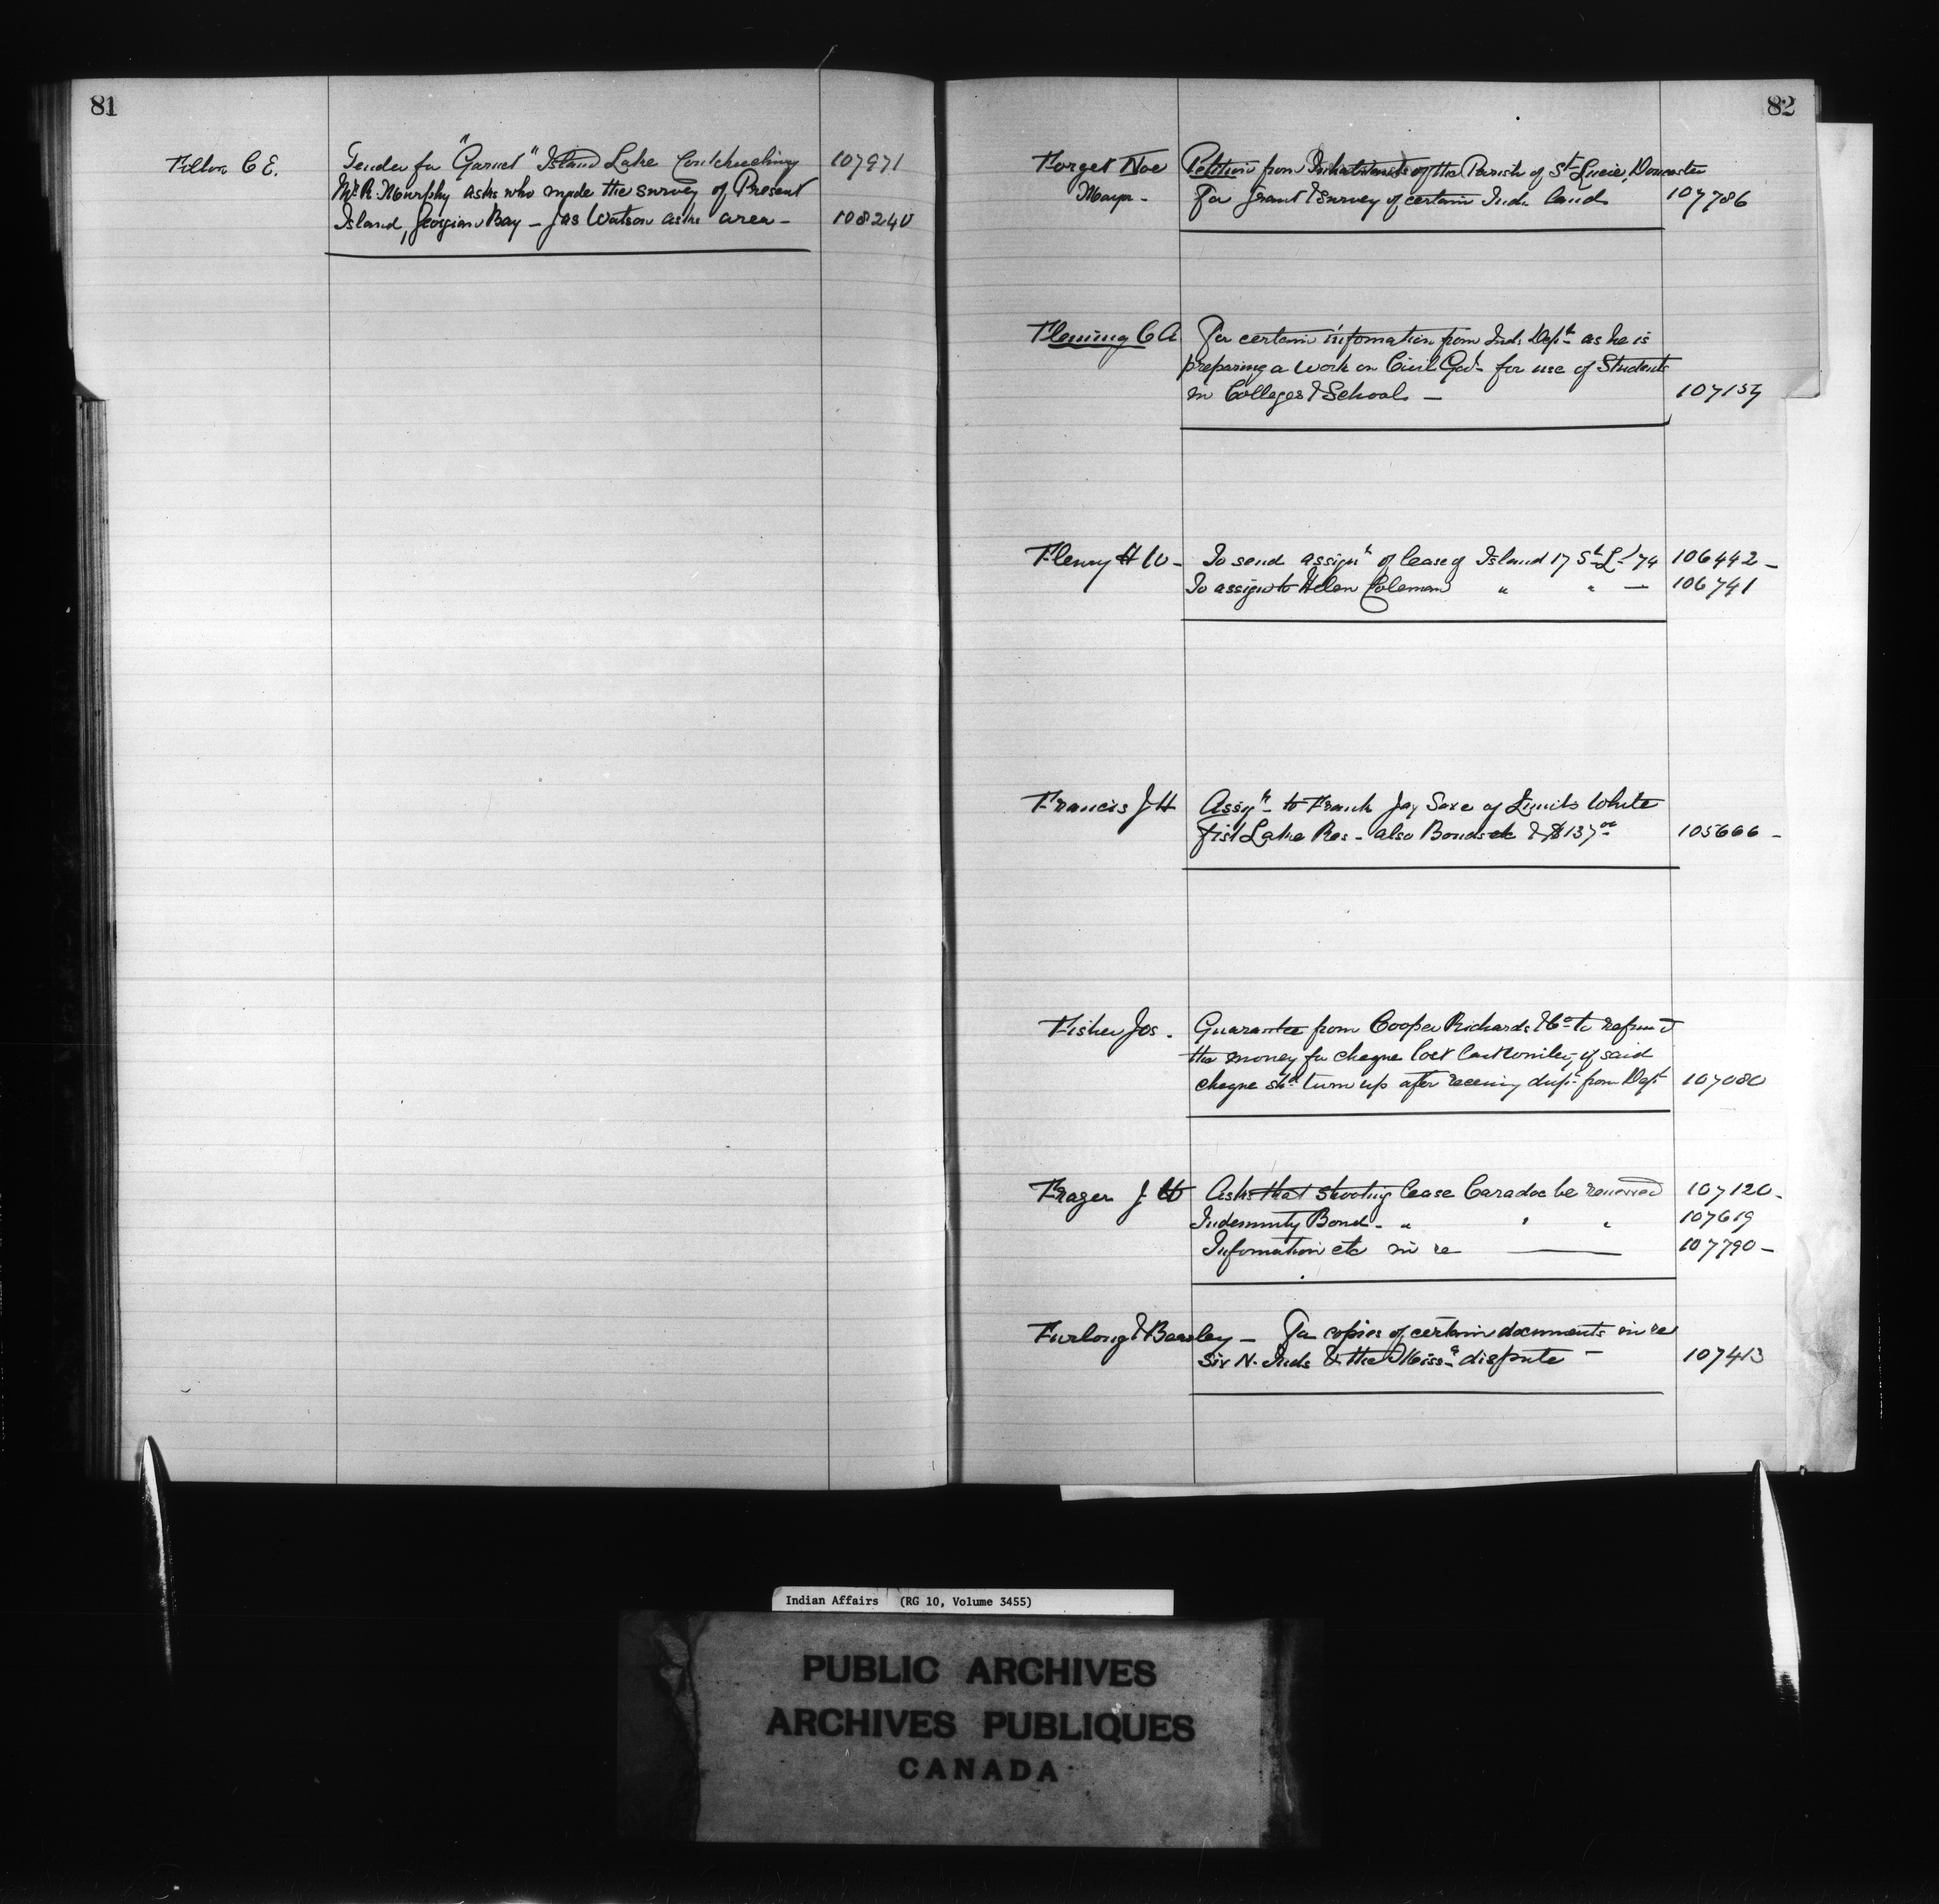 81
Fitton C E. Tender for "Garnet" Island Lake Couchiching 107971
Mr. R. Murphy asks who made the survey of Present
Island, Georgian Bay - Jas Watson asks area - 108240
82
Forget Noe Petition from Inhabitants of the Parish of St Lucie, Doncaster
Mayor - For grant & survey of certain Indn land 107786
Fleming C A For certain information from Ind. Dept as he is
preparing a work on Civil Govt for use of Students
in Colleges & Schools - 107157
Fleury H W - To send assignt of lease of Island 17 St L - 74 106442 -
To assign to Helen Coleman " " - 106741
Francis J H Assignt to Frank Jay Saxe of Limits White
fish Lake Res - also Bonds &c & $137.00 105666 -
Fisher Jos. Guarantee from Cooper Richards & Co to refund
the money for cheque lost last winter, if said
cheque shd turn up after receiving dupt from Dept 107080
Frazer J W Asks that shooting lease Caradoc be renewed 107120 -
Indemnity Bond - " " " 107619
Information etc in re 107790 -
Furlong & Beasley - For copies of certain documents in re
Six N. Inds & the Missa dispute - 107413
Indian Affairs (RG 10, Volume 3455)
PUBLIC ARCHIVES
ARCHIVES PUBLIQUES
CANADA